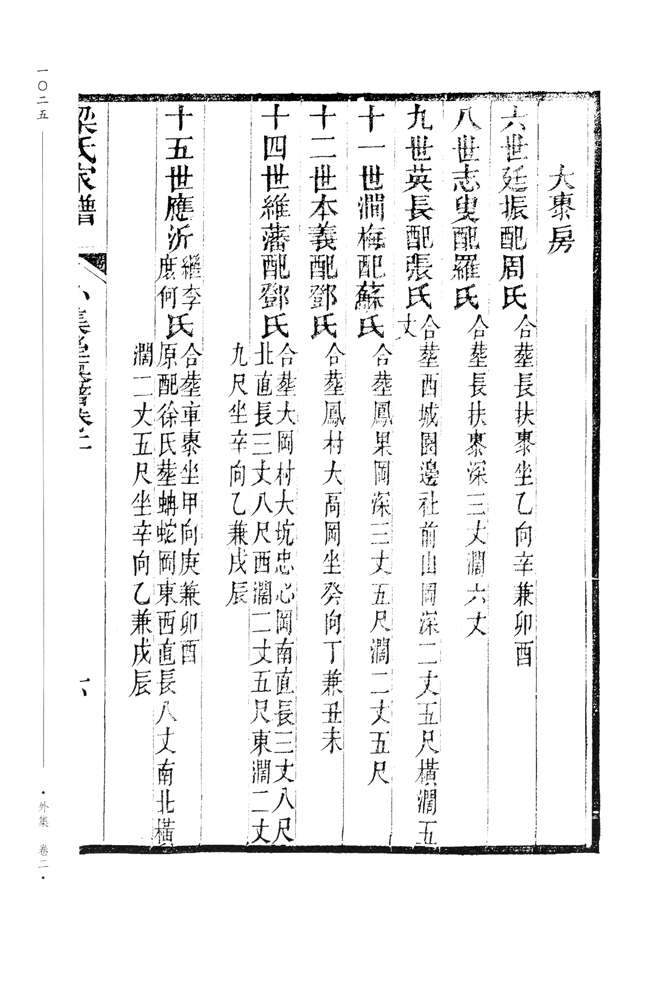 大房
六世廷振配周氏合塟長扶坐乙向辛兼卯酉
八世志叟配羅氏合塟長扶深三丈濶六丈
九世英長配張氏合塟西城園邊社前山岡深二丈五尺橫濶五
丈
十一世澗梅配蘇氏合塟鳳果岡深三丈五尺濶二丈五尺
十二世本義配鄧氏合塟鳳村大高岡坐癸向丁兼丑未
十四世維藩配鄧氏合塟大岡村大坑忠心岡南直長三丈八尺
北直長三丈八尺西濶二丈五尺東濶二丈
九尺坐辛向乙兼戌辰
十五世應沂繼李庶何氏合塟車坐甲向庚兼卯酉
原配徐氏塟蚺蛇岡東西直長八丈南北橫
濶二丈五尺坐辛向乙兼戌辰
梁氏家譜
六
一〇二五
·外集 卷二·